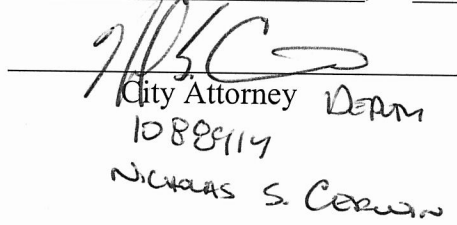 City Attorney DEPUTY
1088914
NICHOLAS S. CERWIN